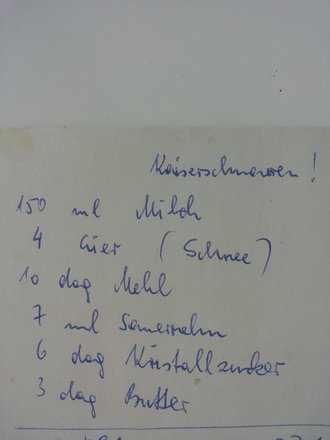 Kaiserschmarren!
150 ml Milch
4 Eier (Schnee)
10 dag Mehl
7 ml Sauerrahm
6 dag Kristallzucker
3 dag Butter